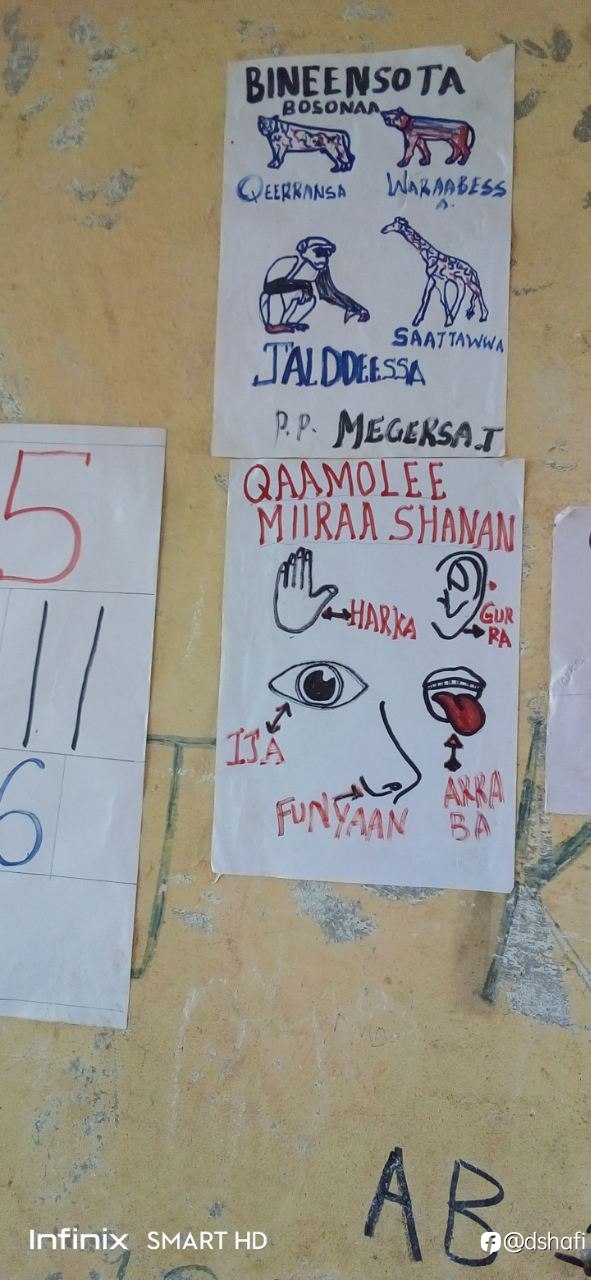 BINEENSOTA
BOSONAA
QEERRANSA
WARAABESS
A.
JALDDEESSA
SAATTAWWA
P.P. MEGERSA.T
QAAMOLEE
MIIRAA SHANAN
HARKA
GUR
RA
IJA
FUNYAAN
ARRA
BA
5
11
6
J
K
AB
Infinix SMART HD
@dshafi